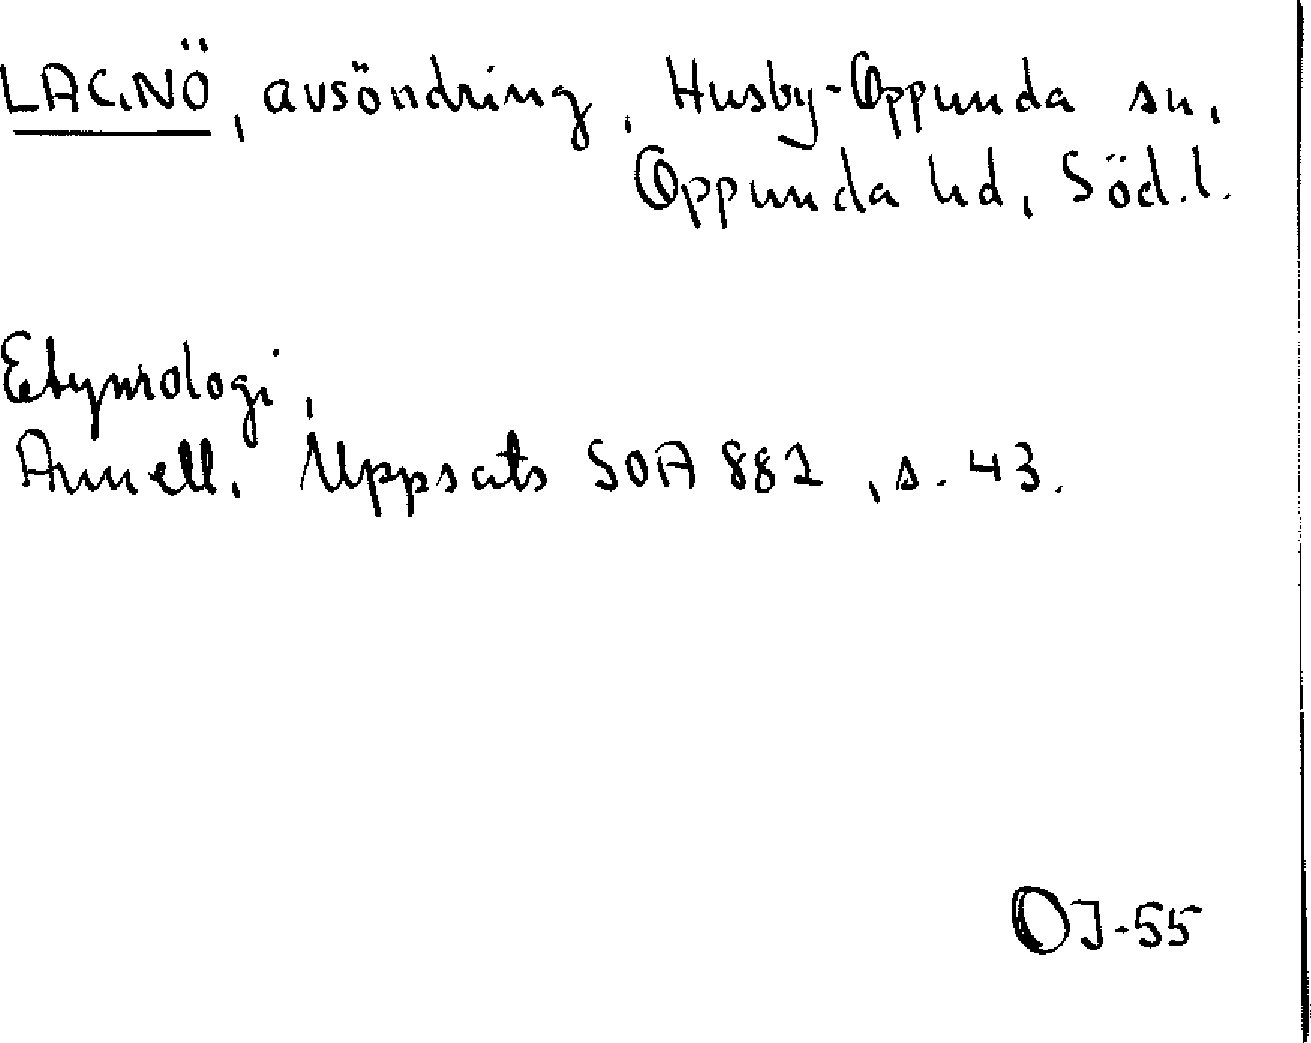 LAGNÖ, avsöndring, Husby-Oppunda sn,
Oppunda hd, Söd.l.
Etymologi,
Annell. Uppsats SOA 882, s. 43.
OJ-55